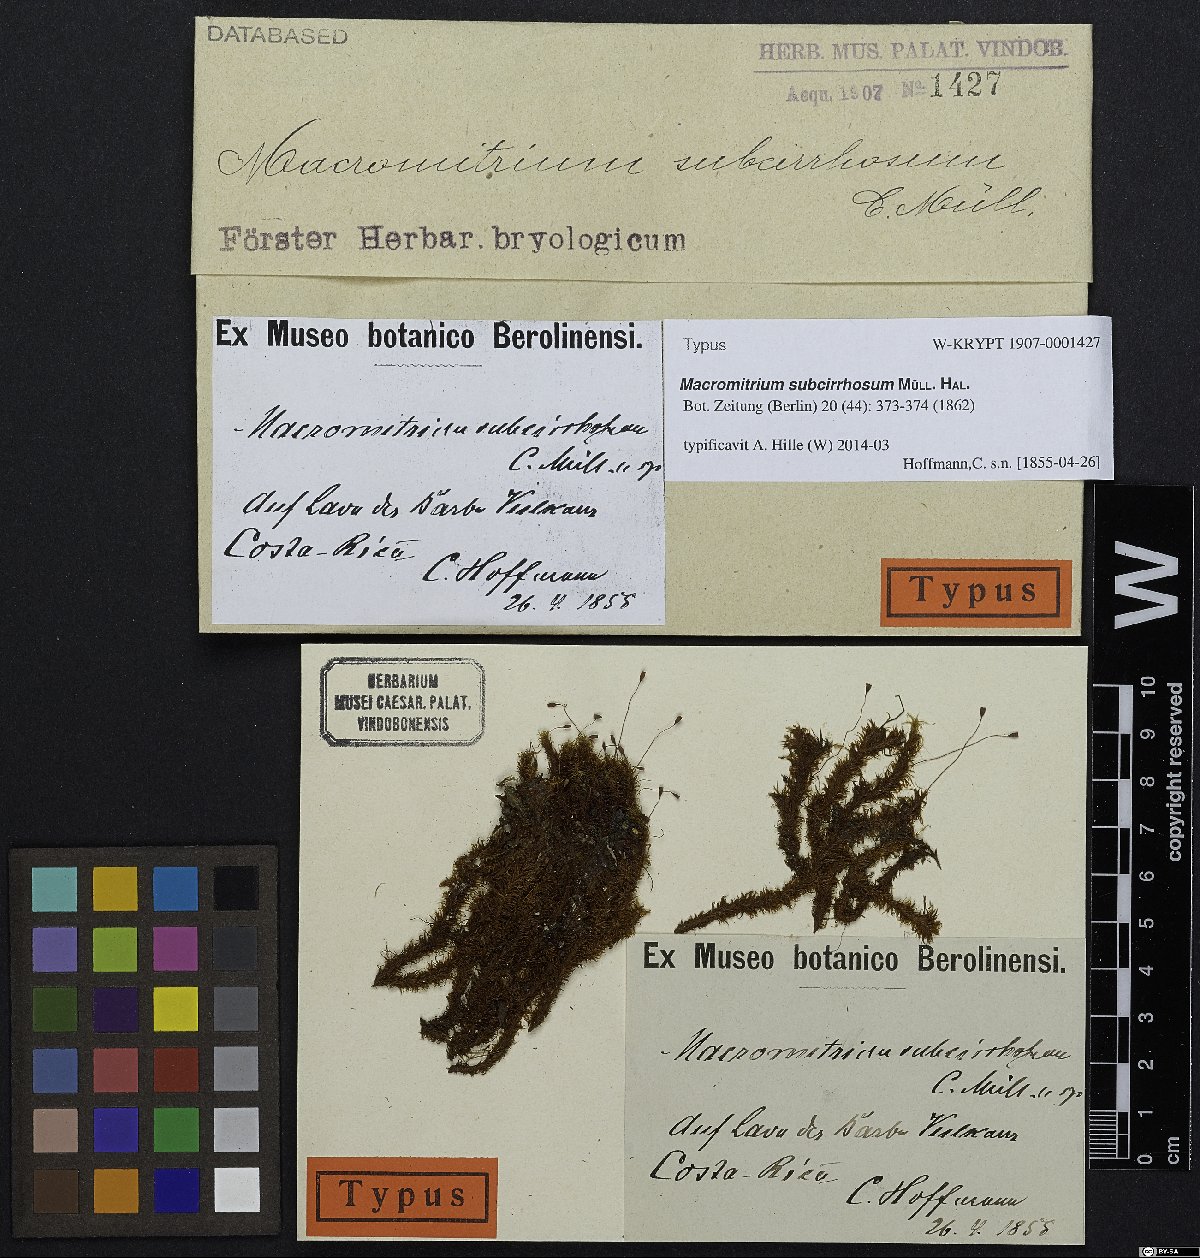 DATABASED
HERB. MUS. PALAT. VINDOB.
Acqu. 1907 No. 1427
Macromitrium subcirrhosum
C. Müll.
Förster Herbar. bryologicum
Ex Museo botanico Berolinensi.
Macromitrium subcirrhosum
C. Müll. n. sp.
Auf Lava des Barba Vulkans
Costa-Rica
C. Hoffmann
26. 4. 1855
Typus W-KRYPT 1907-0001427
Macromitrium subcirrhosum MÜLL. HAL.
Bot. Zeitung (Berlin) 20 (44): 373-374 (1862)
typificavit A. Hille (W) 2014-03
Hoffmann,C. s.n. [1855-04-26]
Typus
HERBARIUM
MUSEI CAESAR. PALAT.
VINDOBONENSIS
Ex Museo botanico Berolinensi.
Macromitrium subcirrhosum
C. Müll. n. sp.
Auf Lava des Barba Vulkans
Costa-Rica
C. Hoffmann
26. 4. 1855
Typus
W
10
9
8
7
6
5
4
3
2
1
0
cm
copyright reserved
cc BY-SA